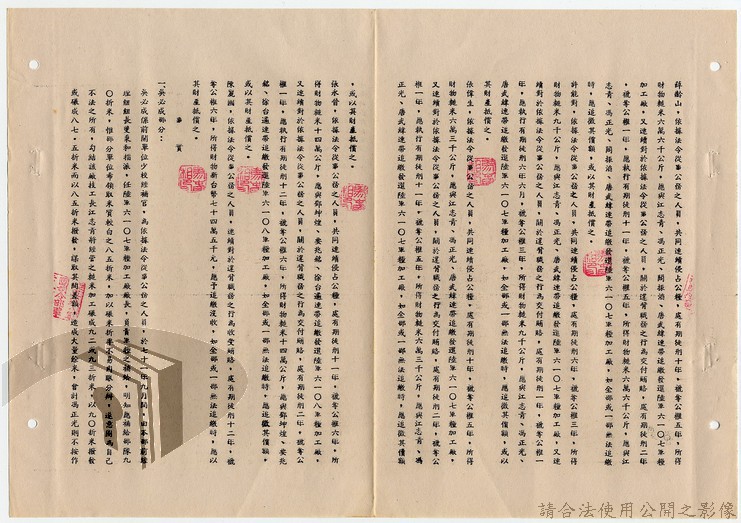 薛齡山，依據法令從事公務之人員，共同連續侵占公糧，處有期徒刑十年，褫奪公權五年，所得
財物糙米六萬六千公斤，應與江志青、馮正光、周振浩、唐武緯連帶追繳發還陸軍六一○七軍糧
加工廠。又連續對於依據法令從事公務之人員，關於違背職務之行為交付賄賂，處有期徒刑二年
，褫奪公權一年，應執行有期徒刑十一年，褫奪公權五年，所得財物糙米六萬六千公斤，應與江
志青、馮正光、周振浩、唐武緯連帶追繳發還陸軍六一○七軍糧加工廠，如全部或一部無法追繳
時，應追徵其價額，或以其財產抵償之。
許能對，依據法令從事公務之人員，共同連續侵占公糧，處有期徒刑六年，褫奪公權三年，所得
財物糙米六萬三千公斤，應與江志青、馮正光、唐武緯連帶追繳發還陸軍六一○七軍糧加工廠，又連
續對於依據法令從事公務之人員，關於違背職務之行為交付賄賂，處有期徒刑一年，褫奪公權一
年，應執行有期徒刑六年六月，褫奪公權三年，所得財物糙米六萬三千公斤，應與江志青、馮正光、
唐武緯連帶追繳發還陸軍六一○七軍糧加工廠，如全部或一部無法追繳時，應追徵其價額，或以
其財產抵償之。
依據法令從事公務之人員，共同連續侵占公糧，處有期徒刑十年，褫奪公權五年，所得
財物糙米六萬三千公斤，應與江志青、馮正光、唐武緯連帶追繳發還陸軍六一○七軍糧加工廠。
又連續對於依據法令從事公務之人員，關於違背職務之行為交付賄賂，處有期徒刑二年，褫奪公
權一年，應執行有期徒刑十一年，褫奪公權五年，所得財物糙米六萬三千公斤，應與江志青、馮
正光、唐武緯連帶追繳發還陸軍六一○七軍糧加工廠，如全部或一部無法追繳時，應追徵其價額
，或以其財產抵償之。
張水晉，依據法令從事公務之人員，共同連續侵占公糧，處有期徒刑十一年，褫奪公權六年，所
得財物糙米十四萬公斤，應與鄧坤煌、徐台遍連帶追繳發還陸軍六一○八軍糧加工廠，
又連續對於依據法令從事公務之人員，關於違背職務之行為交付賄賂，處有期徒刑二年，褫奪公
權一年，應執行有期徒刑十二年，褫奪公權六年，所得財物糙米十四萬公斤，應與鄧坤煌、
徐台遍連帶追繳發還陸軍六一○八軍糧加工廠，如全部或一部無法追繳時，應追徵其價額，
或以其財產抵償之。
陳麗國，依據法令從事公務之人員，連續對於違背職務之行為收受賄賂，處有期徒刑十二年，褫
奪公權六年，所得財物新台幣七十四萬五千元，應予追繳沒收，如全部或一部無法追繳時，應以
其財產抵償之。
事實
一、吳必成部分：
吳必成係前開單位少校經補官，為依據法令從事公務之人員，於七十一年九月間，由本部前駐
組長指派，任陸軍六一○七軍糧加工廠廠長，負責軍糧之補給，明知其補給部隊九
○折米，惟部分單位希領取米質較白之八五折米，加以碾米折率不易肉眼分辨，遂意圖為自己
不法之所有，勾結該廠技工長江志青將經管之糙米加工碾成九二或九三折米，以九○折米撥發
或碾成八七．五折米而以八五折米撥發，謀取其間差額，造成大量餘米，曾對馮正光則不按作
請合法使用公開之影像